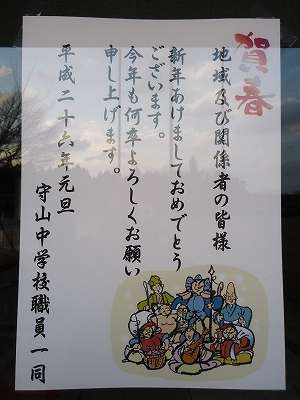 賀春
地域及び関係者の皆様
新年あけましておめでとう
ございます。
今年も何卒よろしくお願い
申し上げます。
平成二十六年元旦
守山中学校職員一同